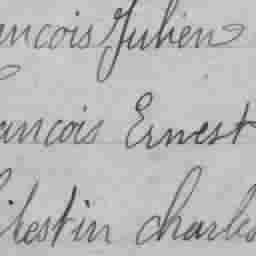 ancois Julien
ancois Ernest
lestin charles